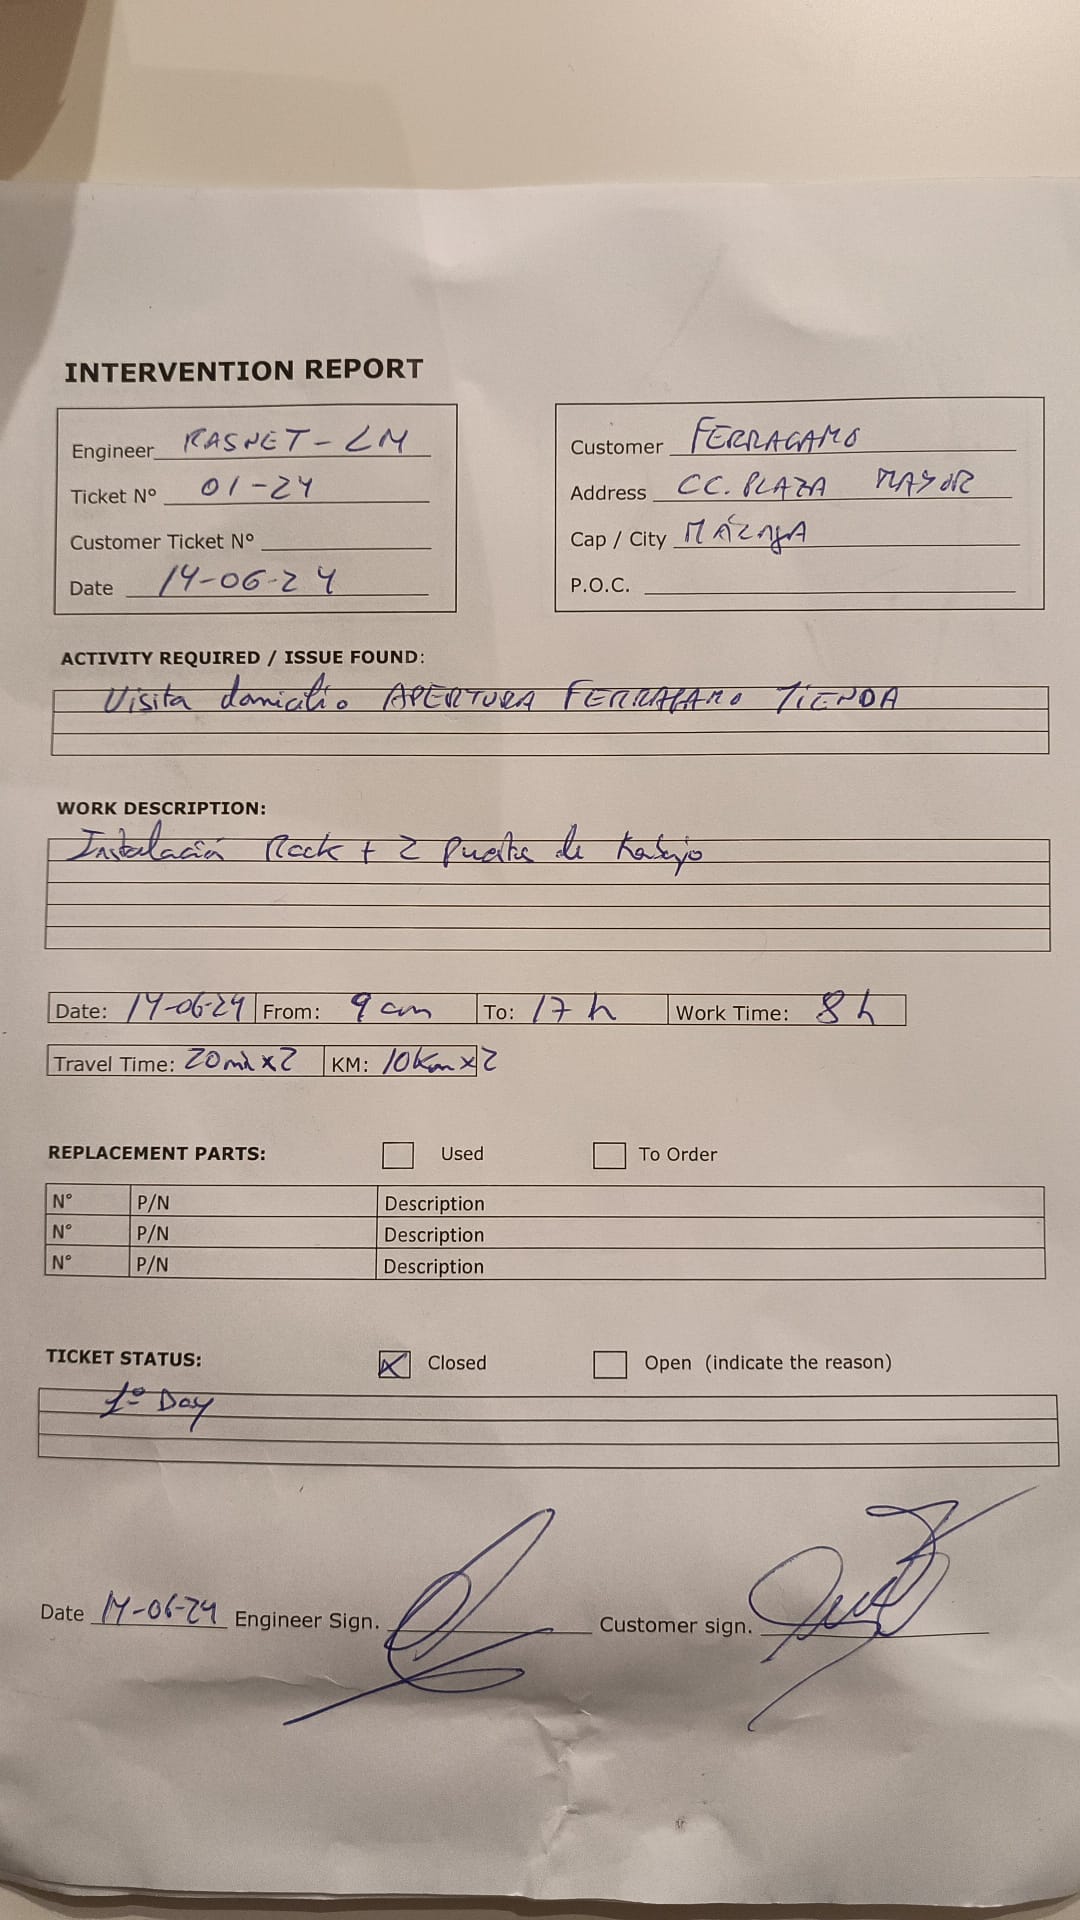 INTERVENTION REPORT
Engineer RASNET-LM
Ticket Nº 01-24
Customer Ticket Nº
Date 14-06-24
Customer FERRAGAMO
Address CC. PLAZA MAYOR
Cap / City MÁLAgA
P.O.C.
ACTIVITY REQUIRED / ISSUE FOUND:
Visita domicilio APERTURA FERRAGAMO TIENDA
WORK DESCRIPTION:
Instalación Rack + 2 puestos de trabajo
Date: 14-06-24 From: 9 am To: 17 h Work Time: 8 h
Travel Time: 20 min x 2 KM: 10 Km x 2
REPLACEMENT PARTS: Used To Order
N° P/N Description
N° P/N Description
N° P/N Description
TICKET STATUS: Closed Open (indicate the reason)
1º Day
Date 14-06-24 Engineer Sign. Customer sign.